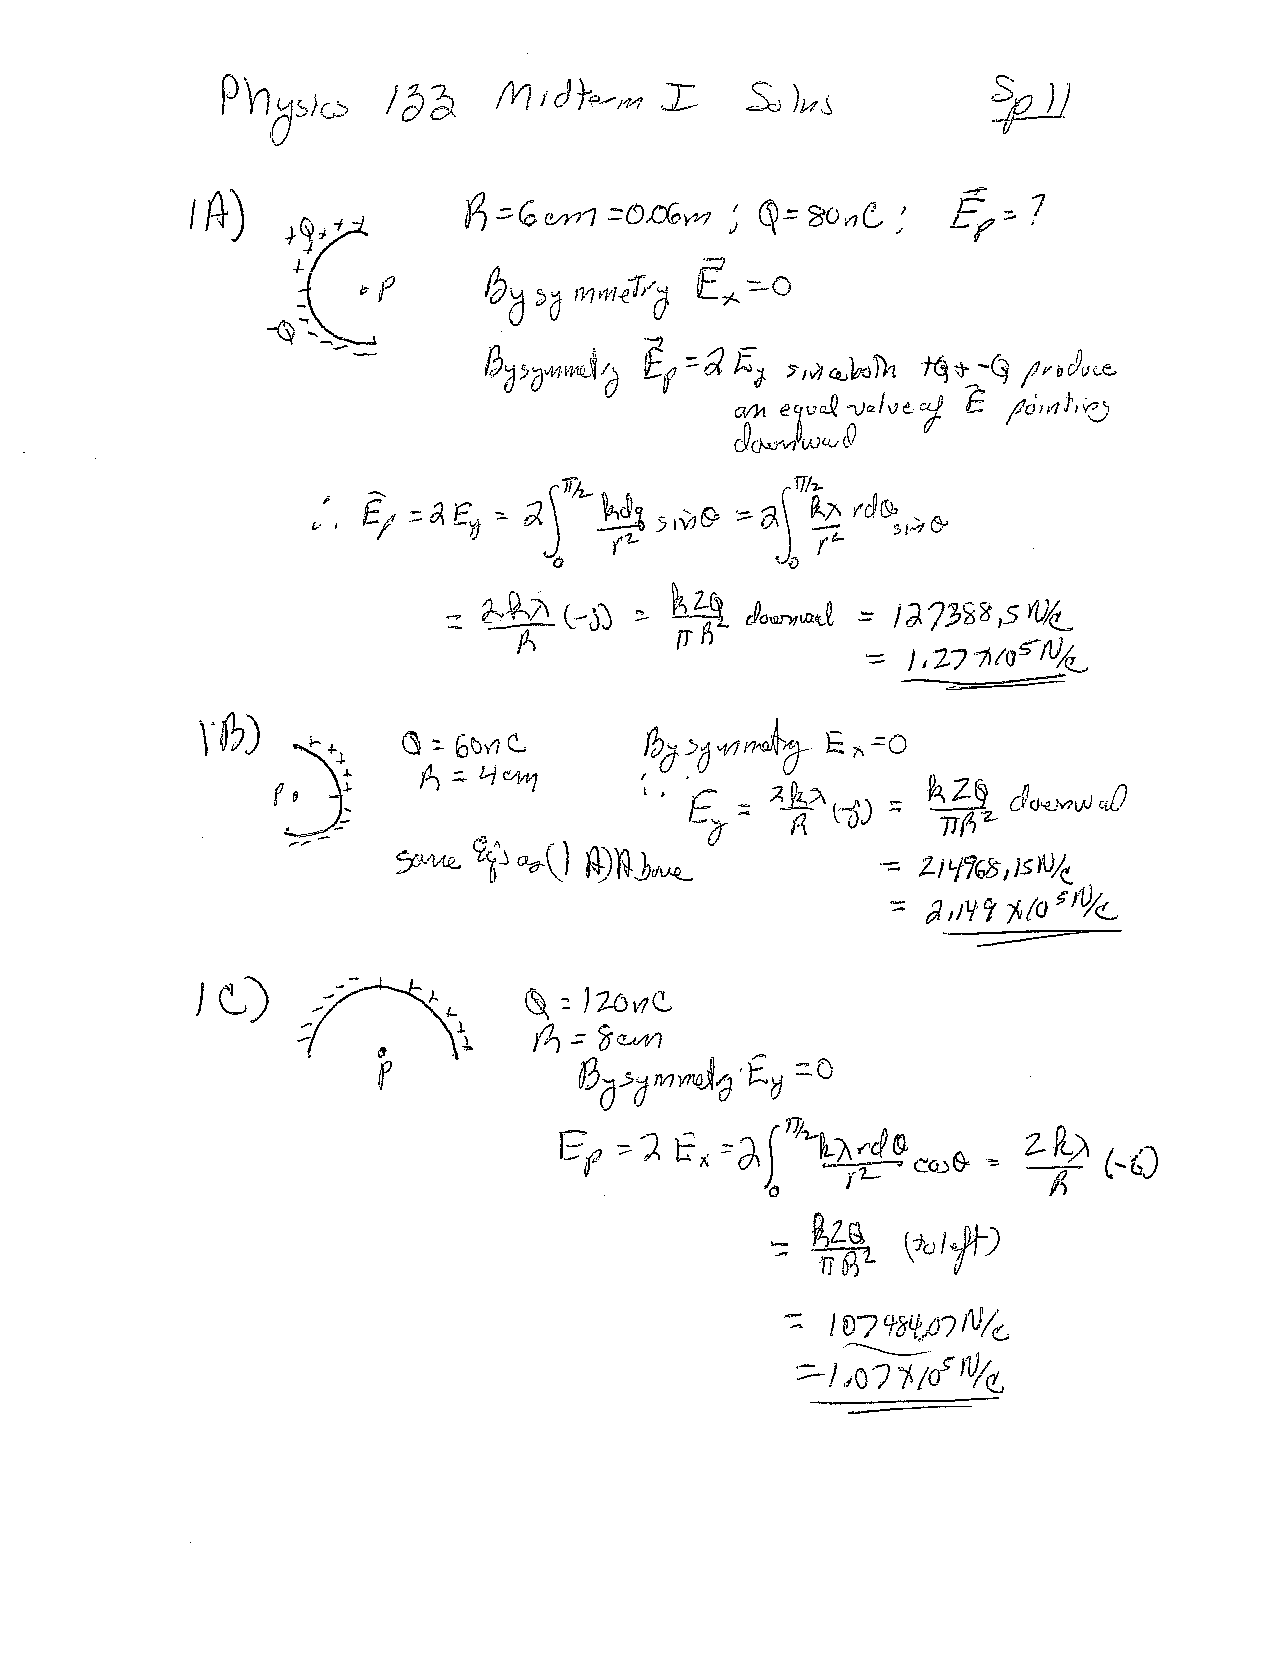 Physics 133 Midterm I Solns Sp 11
1A) R = 6cm = 0.06m ; Q = 80nC ; E⃗p = ?
+Q + + +
+
• P
-Q
By symmetry E⃗x = 0
By symmetry E⃗p = 2 Ey since both +Q + -Q produce
an equal value of E⃗ pointing
downward
∴ E⃗p = 2Ey = 2∫₀^(π/2) kdq/r² sinθ = 2∫₀^(π/2) kλ/r² rdθ sinθ
= 2kλ/R (-j) = k2Q/πR² downward = 127388,5 N/C
= 1.27 x10⁵ N/C
1B) Q = 60nC By symmetry Ex = 0
R = 4cm
P •
∴ Ey = 2kλ/R (-j) = k2Q/πR² downwad
same Eq's as (1A) Above = 214968,15 N/C
= 2.149 x10⁵ N/C
1C) Q = 120nC
R = 8cm
P
By symmetry Ey = 0
Ep = 2 Ex = 2∫₀^(π/2) kλrdθ/r² cosθ = 2kλ/R (-i)
= k2Q/πR² (to left)
= 107484.07 N/C
= 1.07 x10⁵ N/C